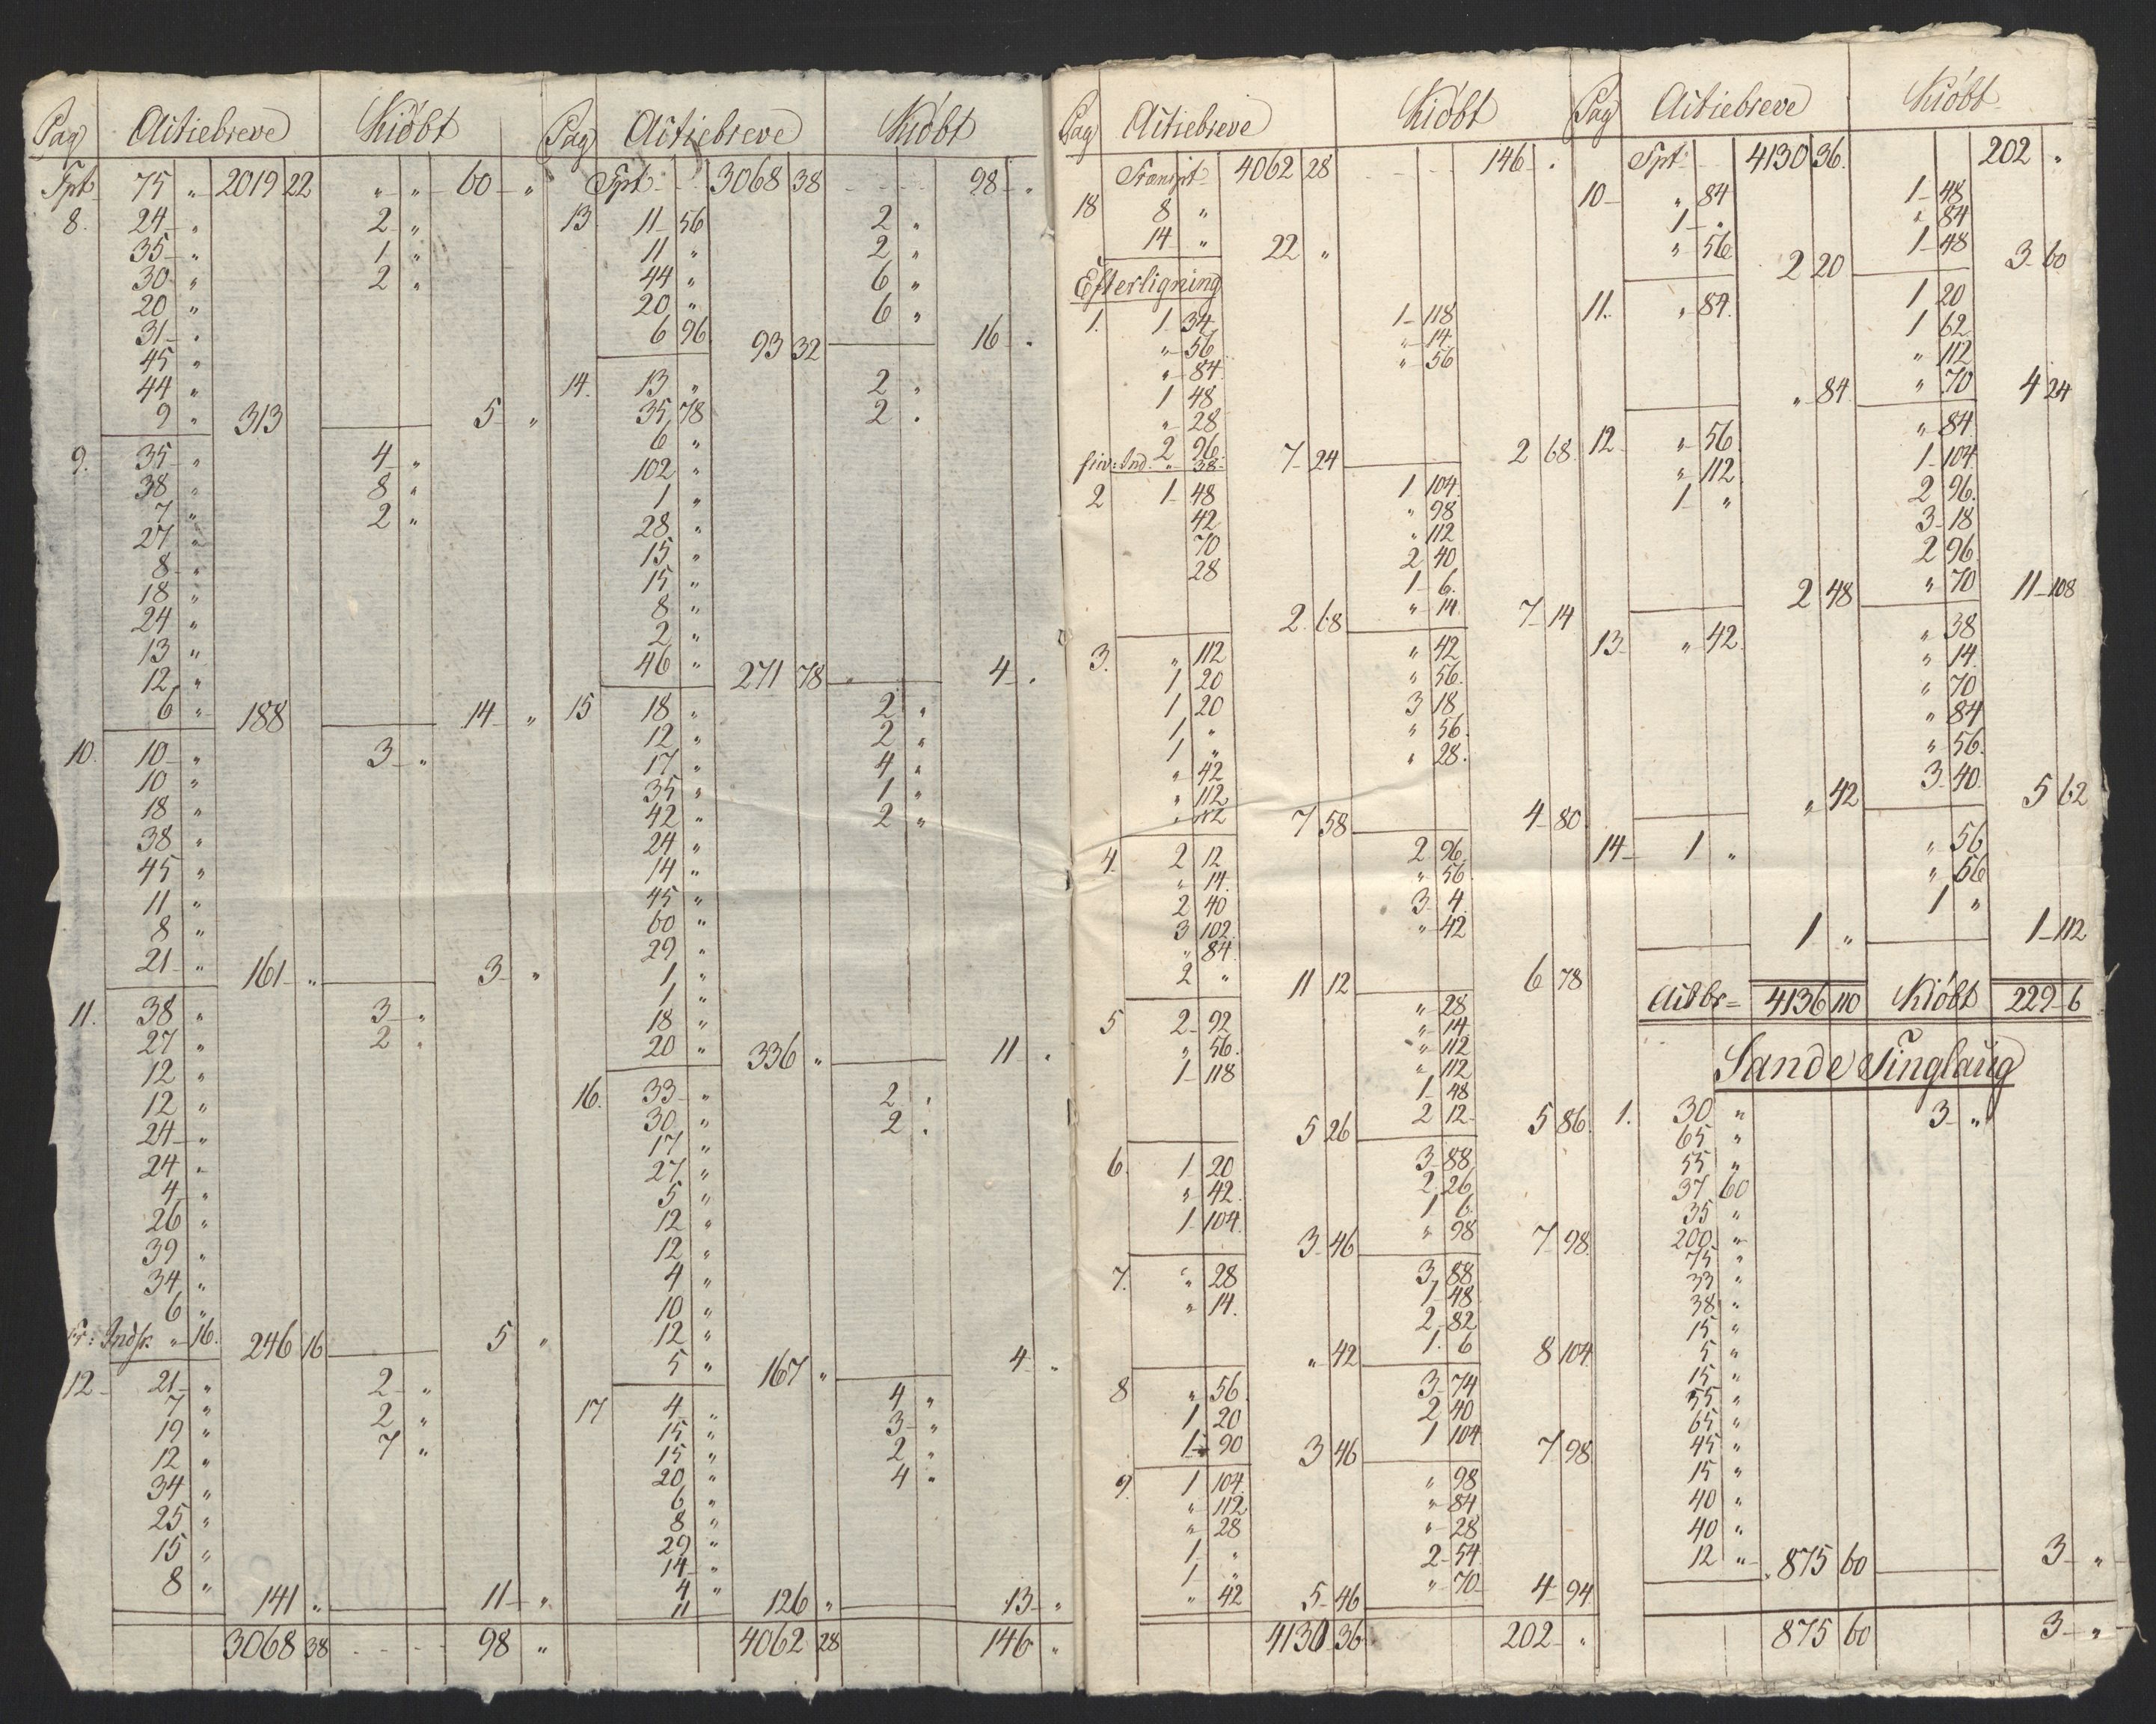 Pag Actiebreve Kiöbt
Tpt 75 " 2019 22 " " 60 "
8. 24 " 2 "
35 " 1 "
30 " 2 "
20 "
31 "
45 "
44 "
9 " 313 5 "
9. 35 " 4 "
38 " 8 "
7 " 2 "
27 "
8 "
18 "
24 "
13 "
12 "
6 " 188 14 "
10. 10 " 3 "
10 "
18 "
38 "
45 "
11 "
8 "
21 " 161 " 3 "
11. 38 " 3 "
27 " 2 "
12 "
12 "
24 "
24 "
4 "
26 "
39 "
34 "
6 "
Indsk " 16. 246 16 5 "
12 21 " 2 "
7 " 2 "
19 " 7 "
12 "
34 "
25 "
15 "
8 " 141 " 11 "
3068 38 98 "
Pag Actiebreve Kiöbt
Tpt 3068 38 98 "
13. 11 56 2 "
11 " 2 "
44 " 6 "
20 " 6 "
6 96 93 32 16 "
14. 13 " 2 "
35 78 2 "
6 "
102 "
1 "
28 "
15 "
15 "
8 "
2 "
46 " 271 78 4 "
15 18 " 2 "
12 " 2 "
17 " 4 "
35 " 1 "
42 " 2 "
24 "
14 "
45 "
60 "
29 "
1 "
1 "
18 "
20 " 336 " 11 "
16. 33 " 2 "
30 " 2 "
17 "
27 "
5 "
12 "
12 "
4 "
10 "
12 "
5 " 167 " 4 "
17 4 " 4 "
15 " 3 "
15 " 2 "
20 " 4 "
6 "
8 "
29 "
14 "
4 "
11 126 " 13 "
4062 28 146 "
Pag Actiebreve Kiöbt
Transpt 4062 28 146 "
18 8 "
14 " 22 "
Efterligning
1. 1 34 1 118
" 56 " 14
" 84 " 56
1 48
" 28
2 96
Ind. " 38 7 24 2 68
2 1 48 1 104
42 " 98
70 " 112
28 2 40
1 6
2 68 " 14 7 14
3. " 112 " 42
1 20 " 56
1 20 3 18
1 " " 56
1 " " 28
" 42
" 112
" 112 7 58 4 80
4. 2 12 2 96
" 14 " 56
2 40 3 4
3 102 " 42
" 84
2 " 11 12 6 78
5 2 92 " 28
" 56 " 14
1 118 " 112
" 112
1 48
5 26 2 12 5 86
6. 1 20 3 88
" 42 2 26
1 104 1 6
3 46 " 98 7 98
7. " 28 3 88
" 14 1 48
2 82
" 42 1 6 8 104
8 " 56 3 74
1 20 2 40
1 90 3 46 1 104 7 98
9. 1 104 " 98
" 112 " 84
" 28 " 28
1 " 2 54
1 " " 70
" 42 5 46 4 94
4130 36 202 "
Pag Actiebreve Kiöbt
Tpt 4130 36 202 "
10 " 84 1 48
1 " " 84
" 56 2 20 1 48 3 60
11. " 84 1 20
1 62
" 112
" 84 " 70 4 24
12 " 56 " 84
" 112 1 104
1 " 2 96
3 18
2 96
2 48 " 70 11 108
13 " 42 " 38
" 14
" 70
" 84
" 56
" 42 3 40 5 62
14 1 " " 56
" 56
1 "
1 " 1 112
Actbr= 4136 110 Kiöbt 229 6
Sande Tinglaug
1. 30 " 3 "
65 "
55 "
37 60
35 "
200 "
75 "
33 "
38 "
15 "
5 "
15 "
55 "
65 "
45 "
15 "
40 "
40 "
12 " 875 60 3 "
875 60 3 "